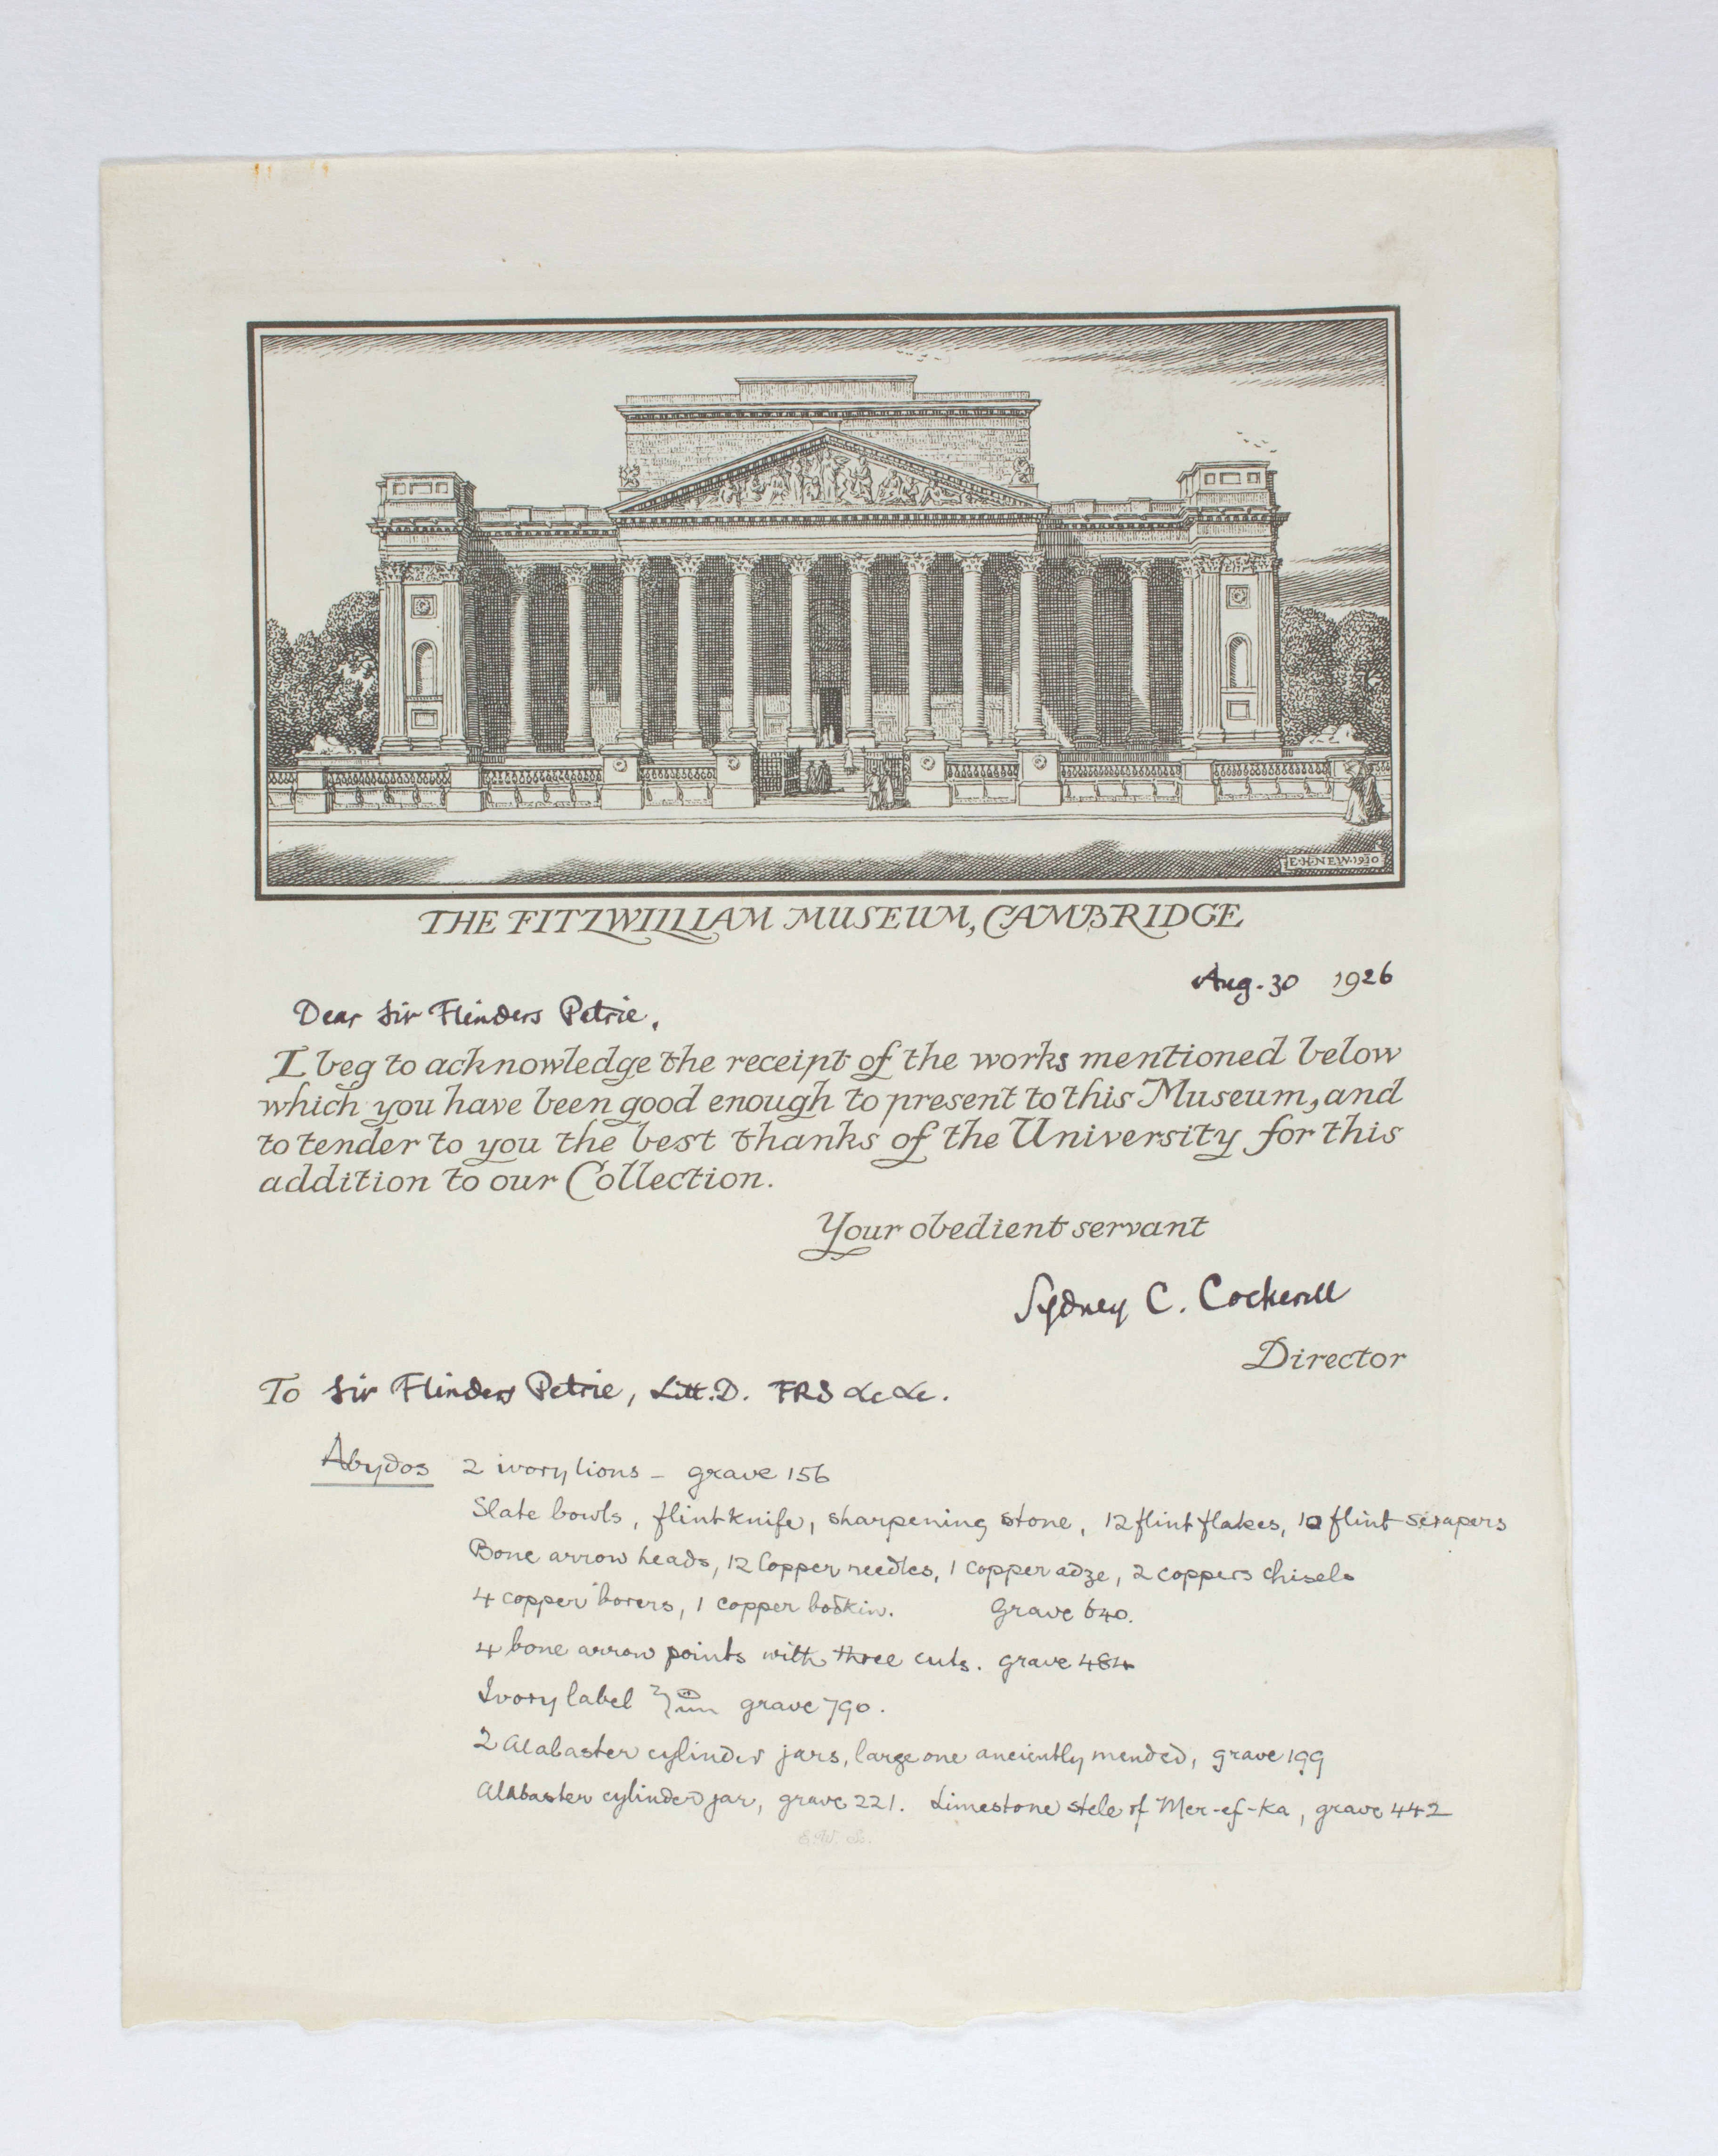 E·H·NEW·1910
THE FITZWILLIAM MUSEUM, CAMBRIDGE
Aug. 30 1926
Dear Sir Flinders Petrie,
I beg to acknowledge the receipt of the works mentioned below
which you have been good enough to present to this Museum, and
to tender to you the best thanks of the University for this
addition to our Collection.
Your obedient servant
Sydney C. Cockerell
Director
To Sir Flinders Petrie, Litt.D. FRS &c &c.
Abydos 2 ivory lions – grave 156
Slate bowls, flint knife, sharpening stone, 12 flint flakes, 10 flint scrapers
Bone arrow heads, 12 Copper needles, 1 copper adze, 2 coppers chisels
4 copper borers, 1 copper bodkin. Grave 640.
4 bone arrow points with three cuts. grave 484
Ivory label grave 790.
2 Alabaster cylinder jars, large one anciently mended, grave 199
Alabaster cylinder jar, grave 221. Limestone stele of Mer-ef-Ka, grave 442